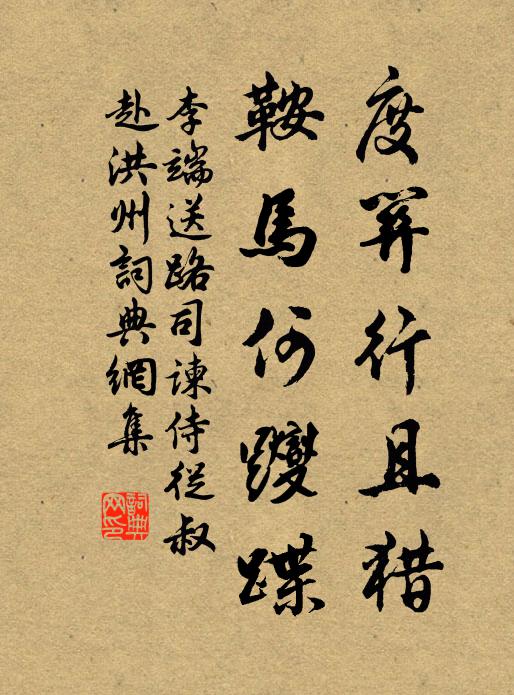 度關行且猎
鞍馬何躞蹀
李端送路司諫侍從叔
赴洪州詞典網集
詞典網印